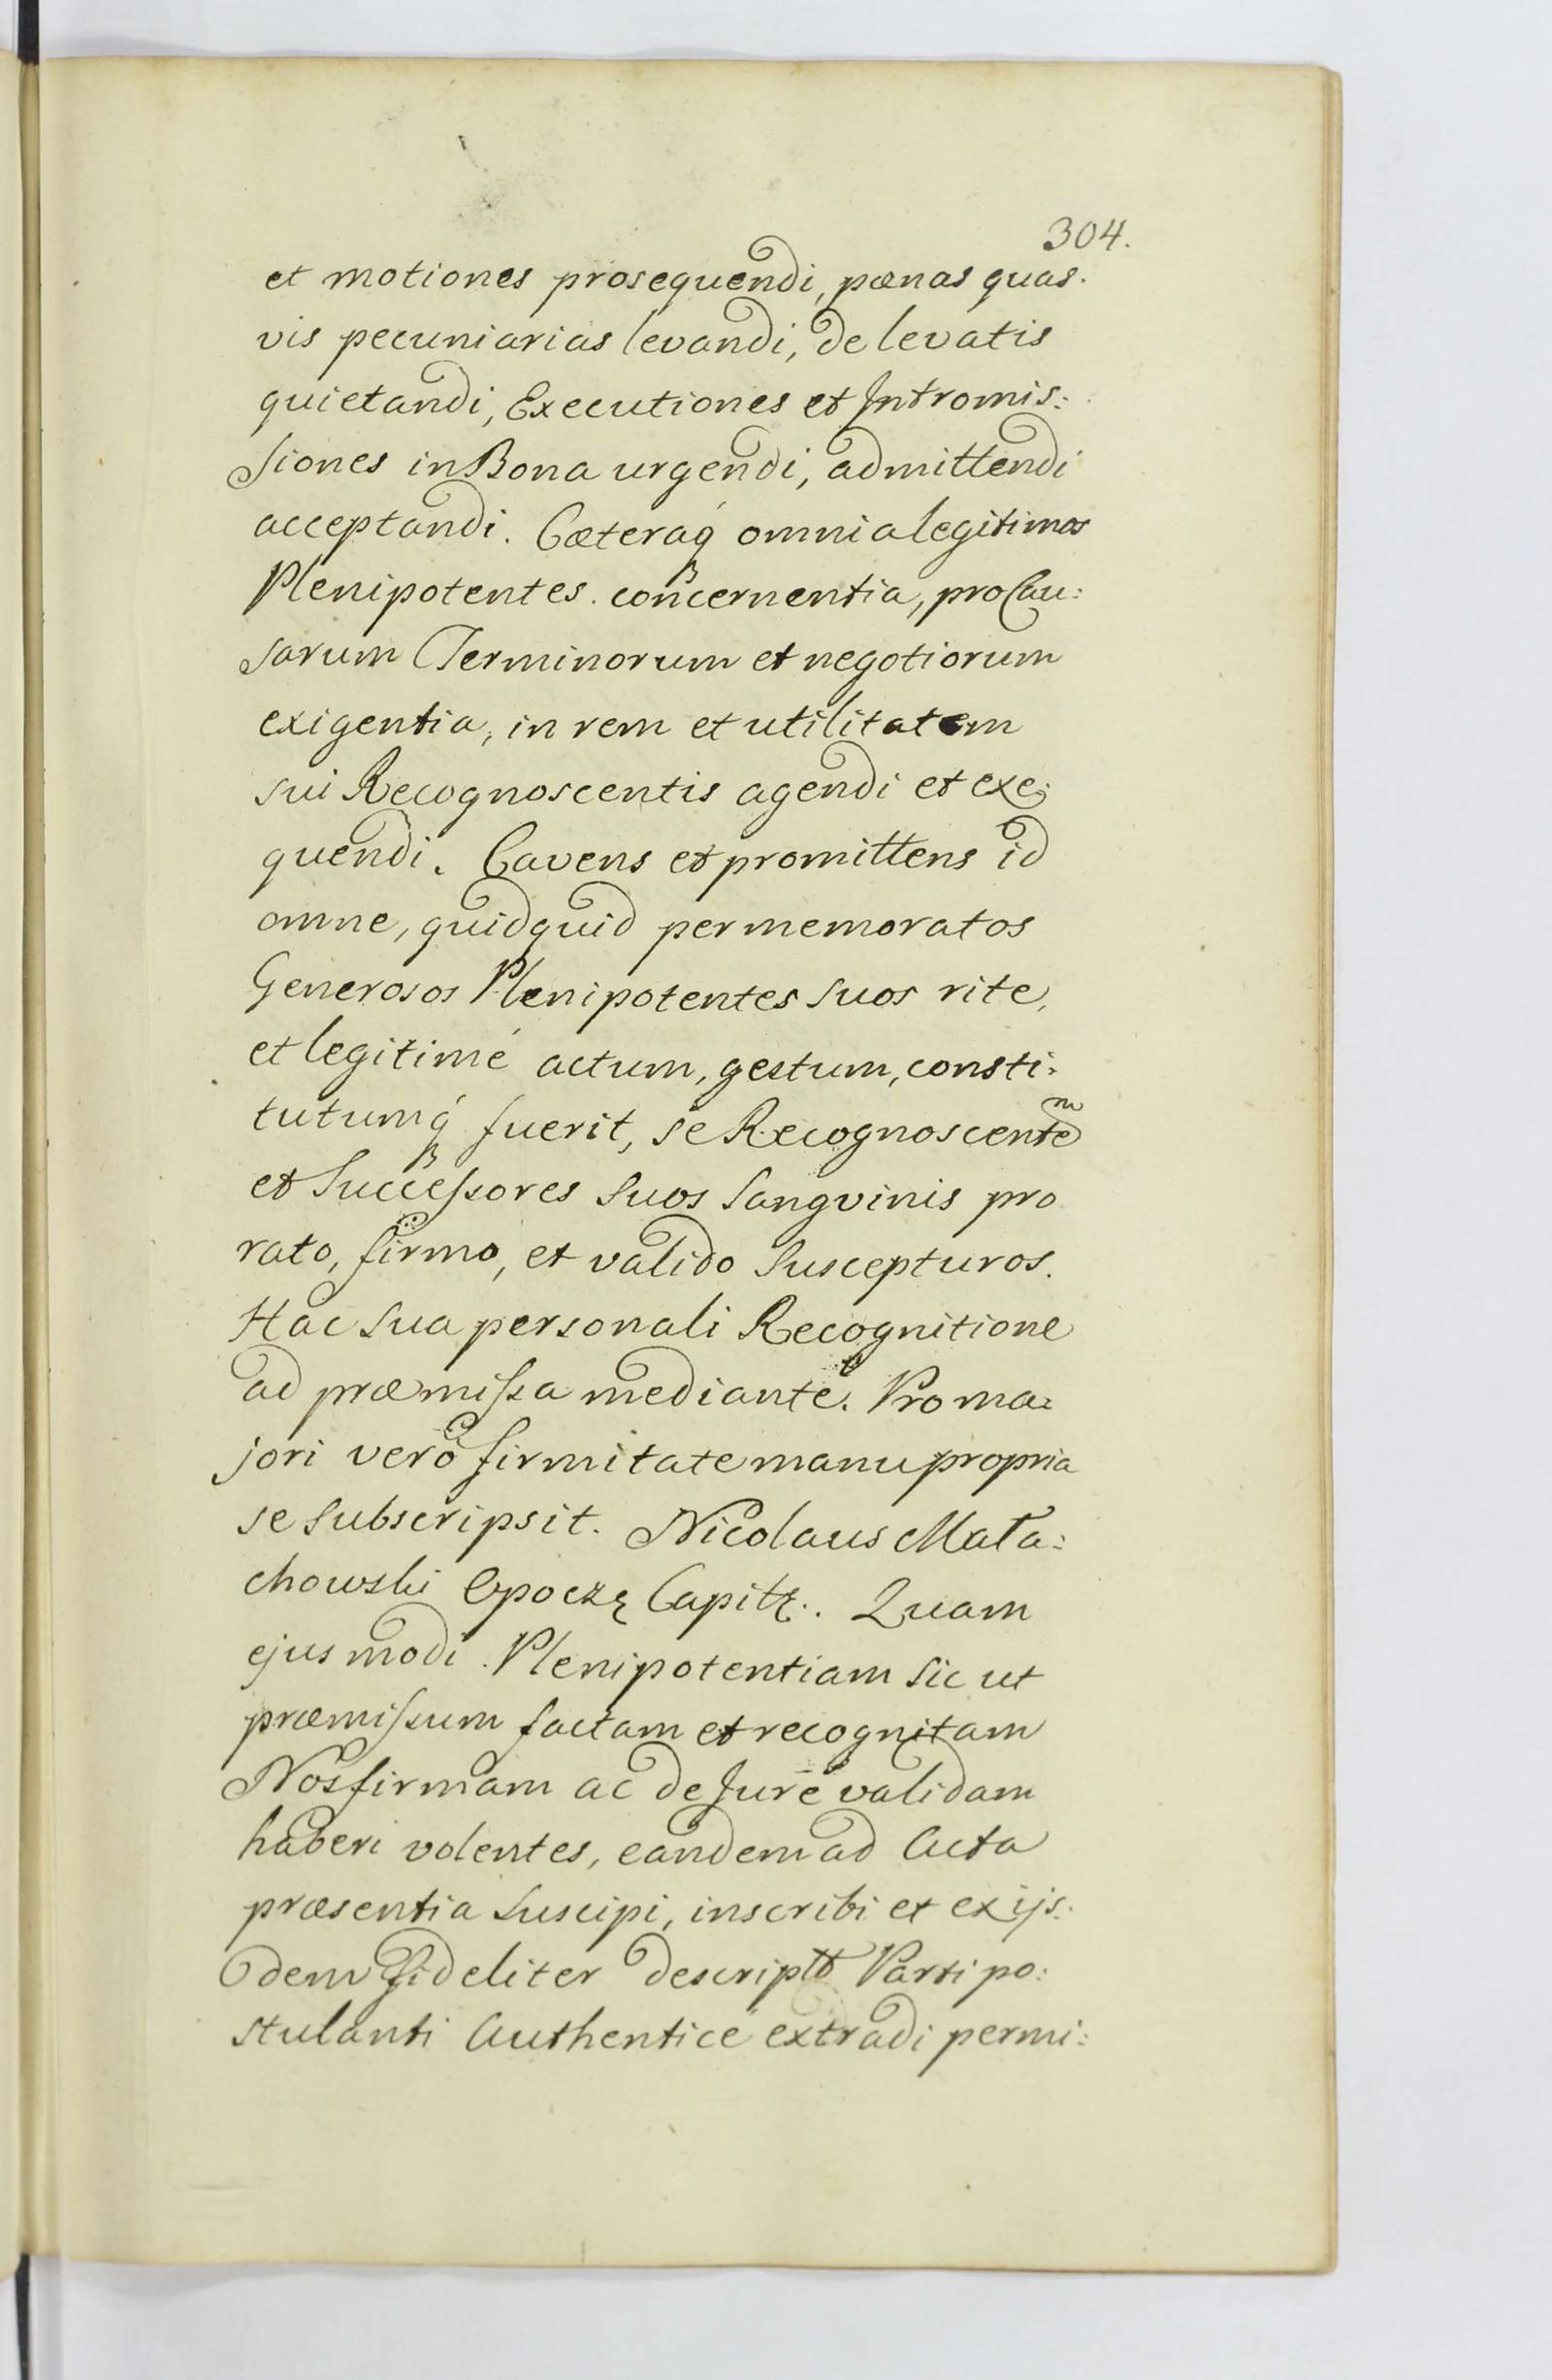 304.
et motiones prosequendi, pœnas quas.
vis pecuniarias levandi, de levatis
quietandi, Executiones et Intromis:
siones in Bona urgendi, admittendi
acceptandi. Cæteraq́ omnia legitimos
Plenipotentes concernentia, pro Cau:
sarum Terminorum et negotiorum
exigentia, in rem et utilitatem
sui Recognoscentis agendi et exe:
quendi. Cavens et promittens id
omne, quidquid per memoratos
Generosos Plenipotentes suos rite,
et legitimé actum, gestum, consti:
tutumq́ fuerit, se Recognoscentem
et Successores suos sangvinis pro
rato, firmo, et valido suscepturos.
Hac sua personali Recognitione
ad præmissa mediante. Pro ma:
jori vero firmitate manu propria
se subscripsit. Nicolaus Mała:
chowski Opoczę Capitę. Quam
ejusmodi Plenipotentiam sic ut
præmissum factam et recognitam
Nos firmam ac de Jure validam
haberi volentes, eandem ad Acta
præsentia suscipi, inscribi et ex ijs:
dem fideliter descriptã Parti po:
stulanti Authentice extradi permi: